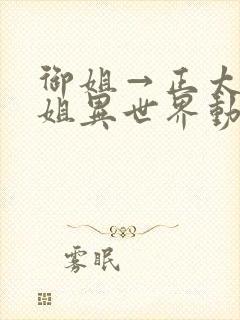 御姐→正太
姐異世界動
雾眠